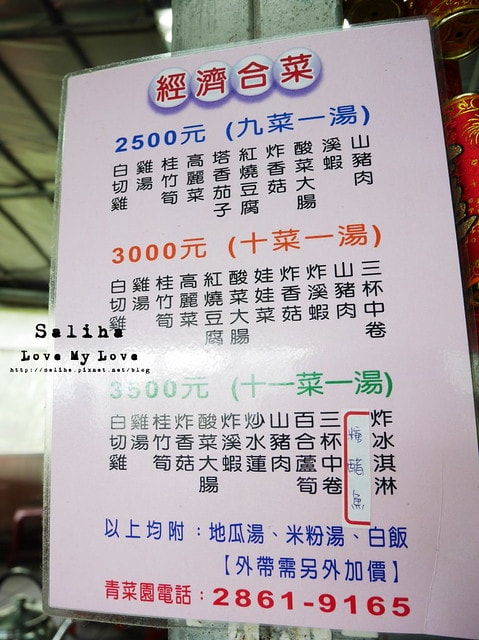 經濟合菜
2500元 (九菜一湯)
白切雞
雞湯
桂竹筍
高麗菜
塔香茄子
紅燒豆腐
炸香菇
酸菜大腸
溪蝦
山豬肉
3000元 (十菜一湯)
白切雞
雞湯
桂竹筍
高麗菜
紅燒豆腐
酸菜大腸
娃娃菜
炸香菇
炸溪蝦
山豬肉
三杯中卷
Saliha
Love My Love
http://saliha.pixnet.net/blog
3500元 (十一菜一湯)
白切雞
雞湯
桂竹筍
炸香菇
酸菜大腸
炸溪蝦
炒水蓮
山豬肉
百合蘆筍
三杯中卷
糖醋魚
炸冰淇淋
以上均附：地瓜湯、米粉湯、白飯
【外帶需另外加價】
青菜園電話：2861-9165